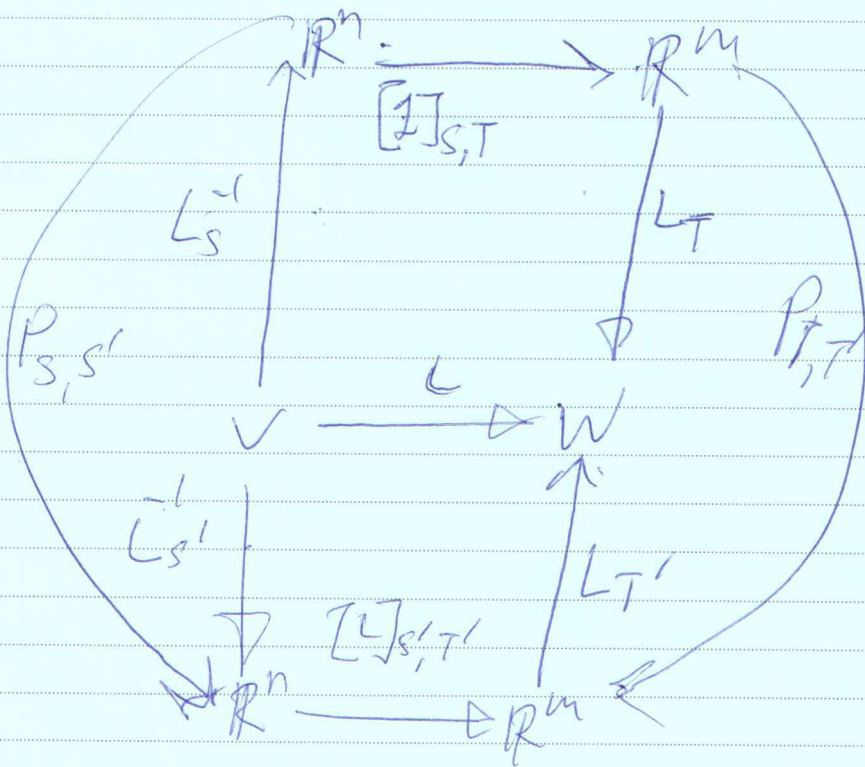 ℝⁿ ℝᵐ
[L]_{S,T}
L_S^{-1} L_T
P_{S,S'} P_{T,T'}
L
V W
L_{S'}^{-1} L_{T'}
[L]_{S',T'}
ℝⁿ ℝᵐ